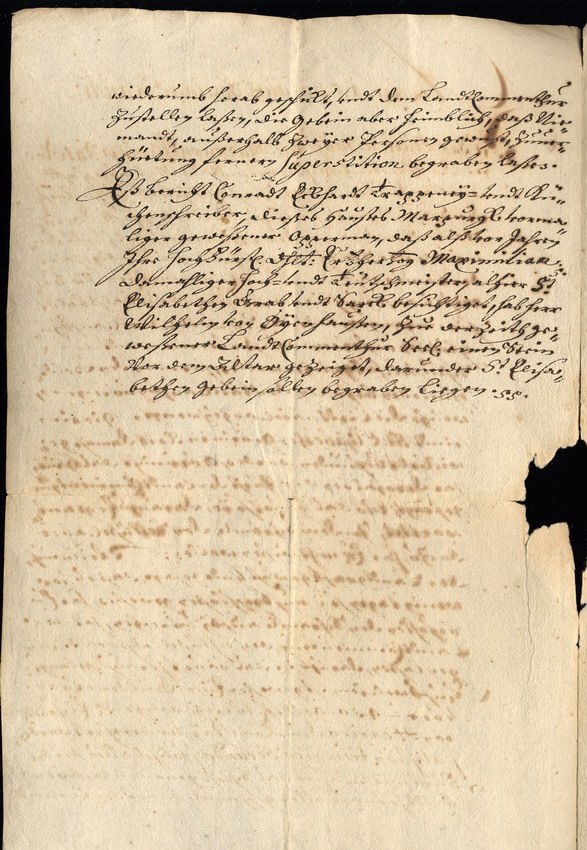 wiederumb herab geschickt, undt dem LandtCommenthur
Zustellen laßen, die Gebein aber heimblich, daß Nie-
mandt, außerhalb Zweyer Persohnen gewust, Zuver-
hüetung fernern Superstition begraben laßen.
Eß bericht Conradt Eckhardt Trappeney- undt Kü-
chenschreiber, dießes Haußes Marpurgk vorma-
liger geweßener Opperman, daß alß vor Jahren
Ihre Hochfürstl. Dhlt: Ertzhertzog Maximilian
damahliger Hoch- undt Teutschmeister, alhier St.
Elisabethen Grab undt Sarck besichtiget, hab Herr
Wilhelm von Öyenhaußen, Zue der Zeith ge-
weßener LandtCommenthur Seel. einen Stein
vor dem Altar gezeiget, darunder St. Elisa-
bethen Gebein sollen begraben liegen.